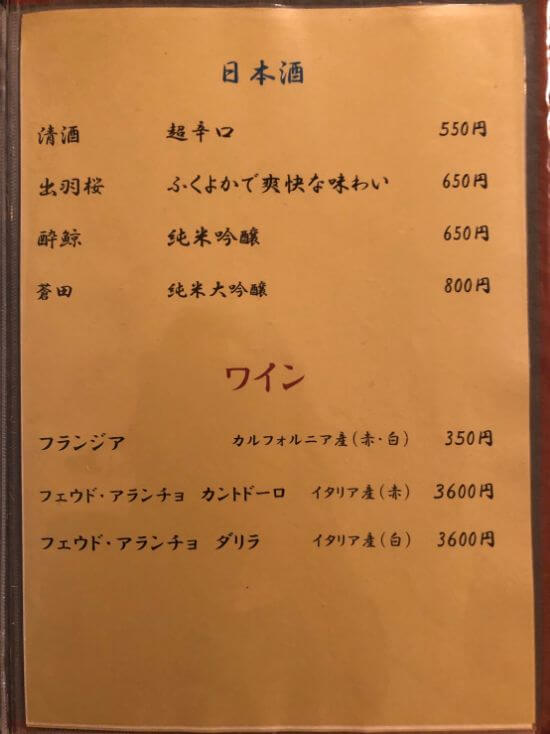 日本酒
清酒 超辛口 550円
出羽桜 ふくよかで爽快な味わい 650円
酔鯨 純米吟醸 650円
蒼田 純米大吟醸 800円
ワイン
フランジア カルフォルニア産(赤・白) 350円
フェウド・アランチョ カントドーロ イタリア産(赤) 3600円
フェウド・アランチョ ダリラ イタリア産(白) 3600円